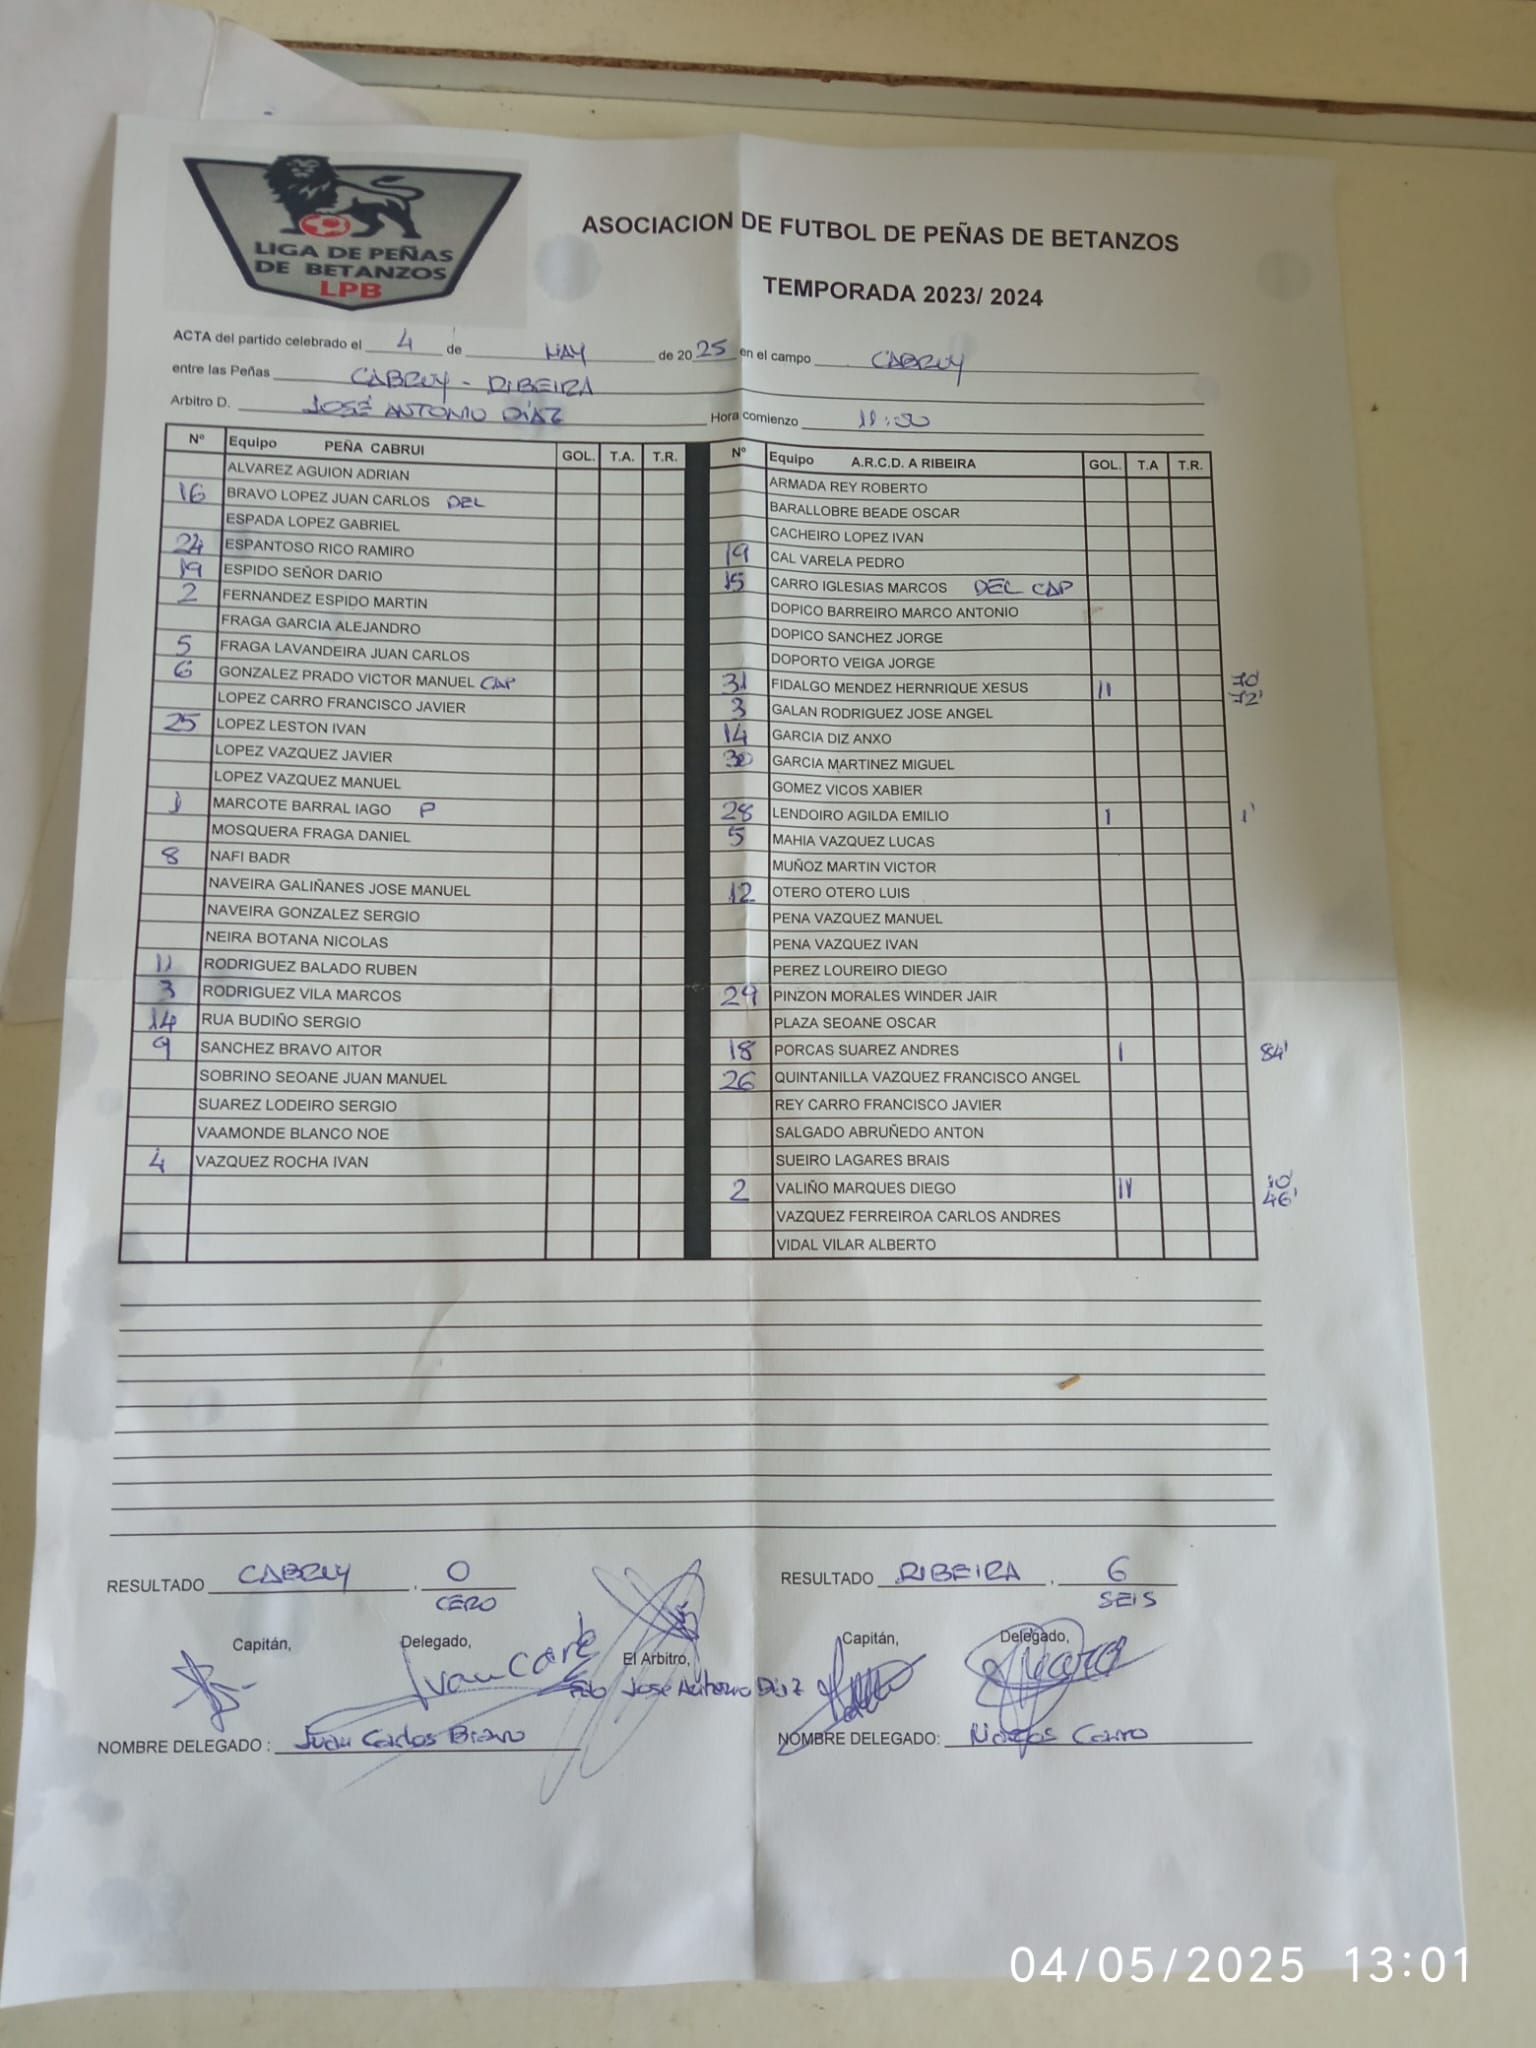 LIGA DE PEÑAS
DE BETANZOS
LPB
ASOCIACION DE FUTBOL DE PEÑAS DE BETANZOS
TEMPORADA 2023/ 2024
ACTA del partido celebrado el 4 de MAY de 2025 en el campo CABRUY
entre las Peñas CABRUY - RIBEIRA
Arbitro D. JOSÉ ANTONIO DÍAZ Hora comienzo
Nº Equipo PEÑA CABRUI GOL. T.A. T.R.
ALVAREZ AGUION ADRIAN
16 BRAVO LOPEZ JUAN CARLOS DEL
ESPADA LOPEZ GABRIEL
24 ESPANTOSO RICO RAMIRO
19 ESPIDO SEÑOR DARIO
2 FERNANDEZ ESPIDO MARTIN
FRAGA GARCIA ALEJANDRO
5 FRAGA LAVANDEIRA JUAN CARLOS
6 GONZALEZ PRADO VICTOR MANUEL CAP
LOPEZ CARRO FRANCISCO JAVIER
25 LOPEZ LESTON IVAN
LOPEZ VAZQUEZ JAVIER
LOPEZ VAZQUEZ MANUEL
1 MARCOTE BARRAL IAGO P
MOSQUERA FRAGA DANIEL
8 NAFI BADR
NAVEIRA GALIÑANES JOSE MANUEL
NAVEIRA GONZALEZ SERGIO
NEIRA BOTANA NICOLAS
11 RODRIGUEZ BALADO RUBEN
3 RODRIGUEZ VILA MARCOS
14 RUA BUDIÑO SERGIO
9 SANCHEZ BRAVO AITOR
SOBRINO SEOANE JUAN MANUEL
SUAREZ LODEIRO SERGIO
VAAMONDE BLANCO NOE
4 VAZQUEZ ROCHA IVAN
Nº Equipo A.R.C.D. A RIBEIRA GOL. T.A T.R.
ARMADA REY ROBERTO
BARALLOBRE BEADE OSCAR
CACHEIRO LOPEZ IVAN
19 CAL VARELA PEDRO
15 CARRO IGLESIAS MARCOS DEL CAP
DOPICO BARREIRO MARCO ANTONIO
DOPICO SANCHEZ JORGE
DOPORTO VEIGA JORGE
31 FIDALGO MENDEZ HERNRIQUE XESUS II 70' 72'
3 GALAN RODRIGUEZ JOSE ANGEL
14 GARCIA DIZ ANXO
30 GARCIA MARTINEZ MIGUEL
GOMEZ VICOS XABIER
28 LENDOIRO AGILDA EMILIO I 1'
5 MAHIA VAZQUEZ LUCAS
MUÑOZ MARTIN VICTOR
12 OTERO OTERO LUIS
PENA VAZQUEZ MANUEL
PENA VAZQUEZ IVAN
PEREZ LOUREIRO DIEGO
29 PINZON MORALES WINDER JAIR
PLAZA SEOANE OSCAR
18 PORCAS SUAREZ ANDRES I 84'
26 QUINTANILLA VAZQUEZ FRANCISCO ANGEL
REY CARRO FRANCISCO JAVIER
SALGADO ABRUÑEDO ANTON
SUEIRO LAGARES BRAIS
2 VALIÑO MARQUES DIEGO II 10' 46'
VAZQUEZ FERREIROA CARLOS ANDRES
VIDAL VILAR ALBERTO
RESULTADO CABRUY . 0
CERO
RESULTADO RIBEIRA . 6
SEIS
Capitán, Delegado, El Arbitro, Capitán, Delegado,
José Antonio Díaz
NOMBRE DELEGADO : Juan Carlos Bravo
NOMBRE DELEGADO: Marcos Carro
04/05/2025 13:01